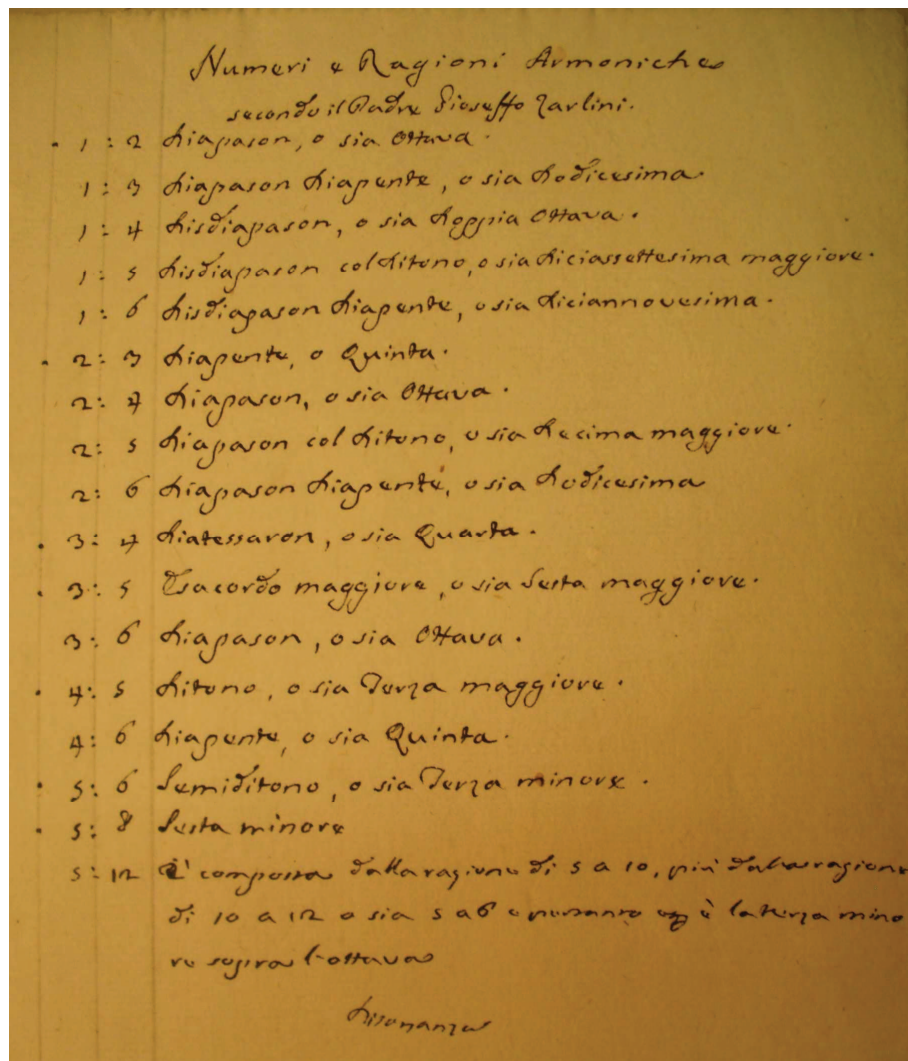 Numeri e Ragioni Armoniche
secondo il Padre Gioseffo Zarlini.
· 1 : 2 Diapason, o sia Ottava.
1 : 3 Diapason Diapente, o sia Dodicesima.
1 : 4 Disdiapason, o sia Doppia Ottava.
1 : 5 Disdiapason col Ditono, o sia Diciassettesima maggiore.
1 : 6 Disdiapason Diapente, o sia Diciannovesima.
· 2 : 3 Diapente, o Quinta.
2 : 4 Diapason, o sia Ottava.
2 : 5 Diapason col Ditono, o sia Decima maggiore.
2 : 6 Diapason Diapente, o sia Dodicesima
· 3 : 4 Diatessaron, o sia Quarta.
· 3 : 5 Esacordo maggiore, o sia Sesta maggiore.
3 : 6 Diapason, o sia Ottava.
· 4 : 5 Ditono, o sia Terza maggiore.
4 : 6 Diapente, o sia Quinta.
· 5 : 6 Semiditono, o sia Terza minore.
· 5 : 8 Sesta minore
5 : 12 È composta dalla ragione di 5 a 10, più dalla ragione
di 10 a 12 o sia 5 a 6 e pertanto è la terza mino
re sopra l'ottava
Disonanza